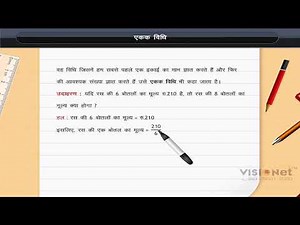 एकक विधि
वह विधि जिसमें हम सबसे पहले एक इकाई का मान ज्ञात करते हैं और फिर
की आवश्यक संख्या ज्ञात करते हैं उसे एकक विधि भी कहा जाता है।
उदाहरण : यदि रस की 6 बोतलों का मूल्य रु.210 है, तो रस की 8 बोतलों का
मूल्य क्या होगा ?
हल : रस की 6 बोतलों का मूल्य = रु.210
इसलिए, रस की एक बोतल का मूल्य = 210/6
VISIONet